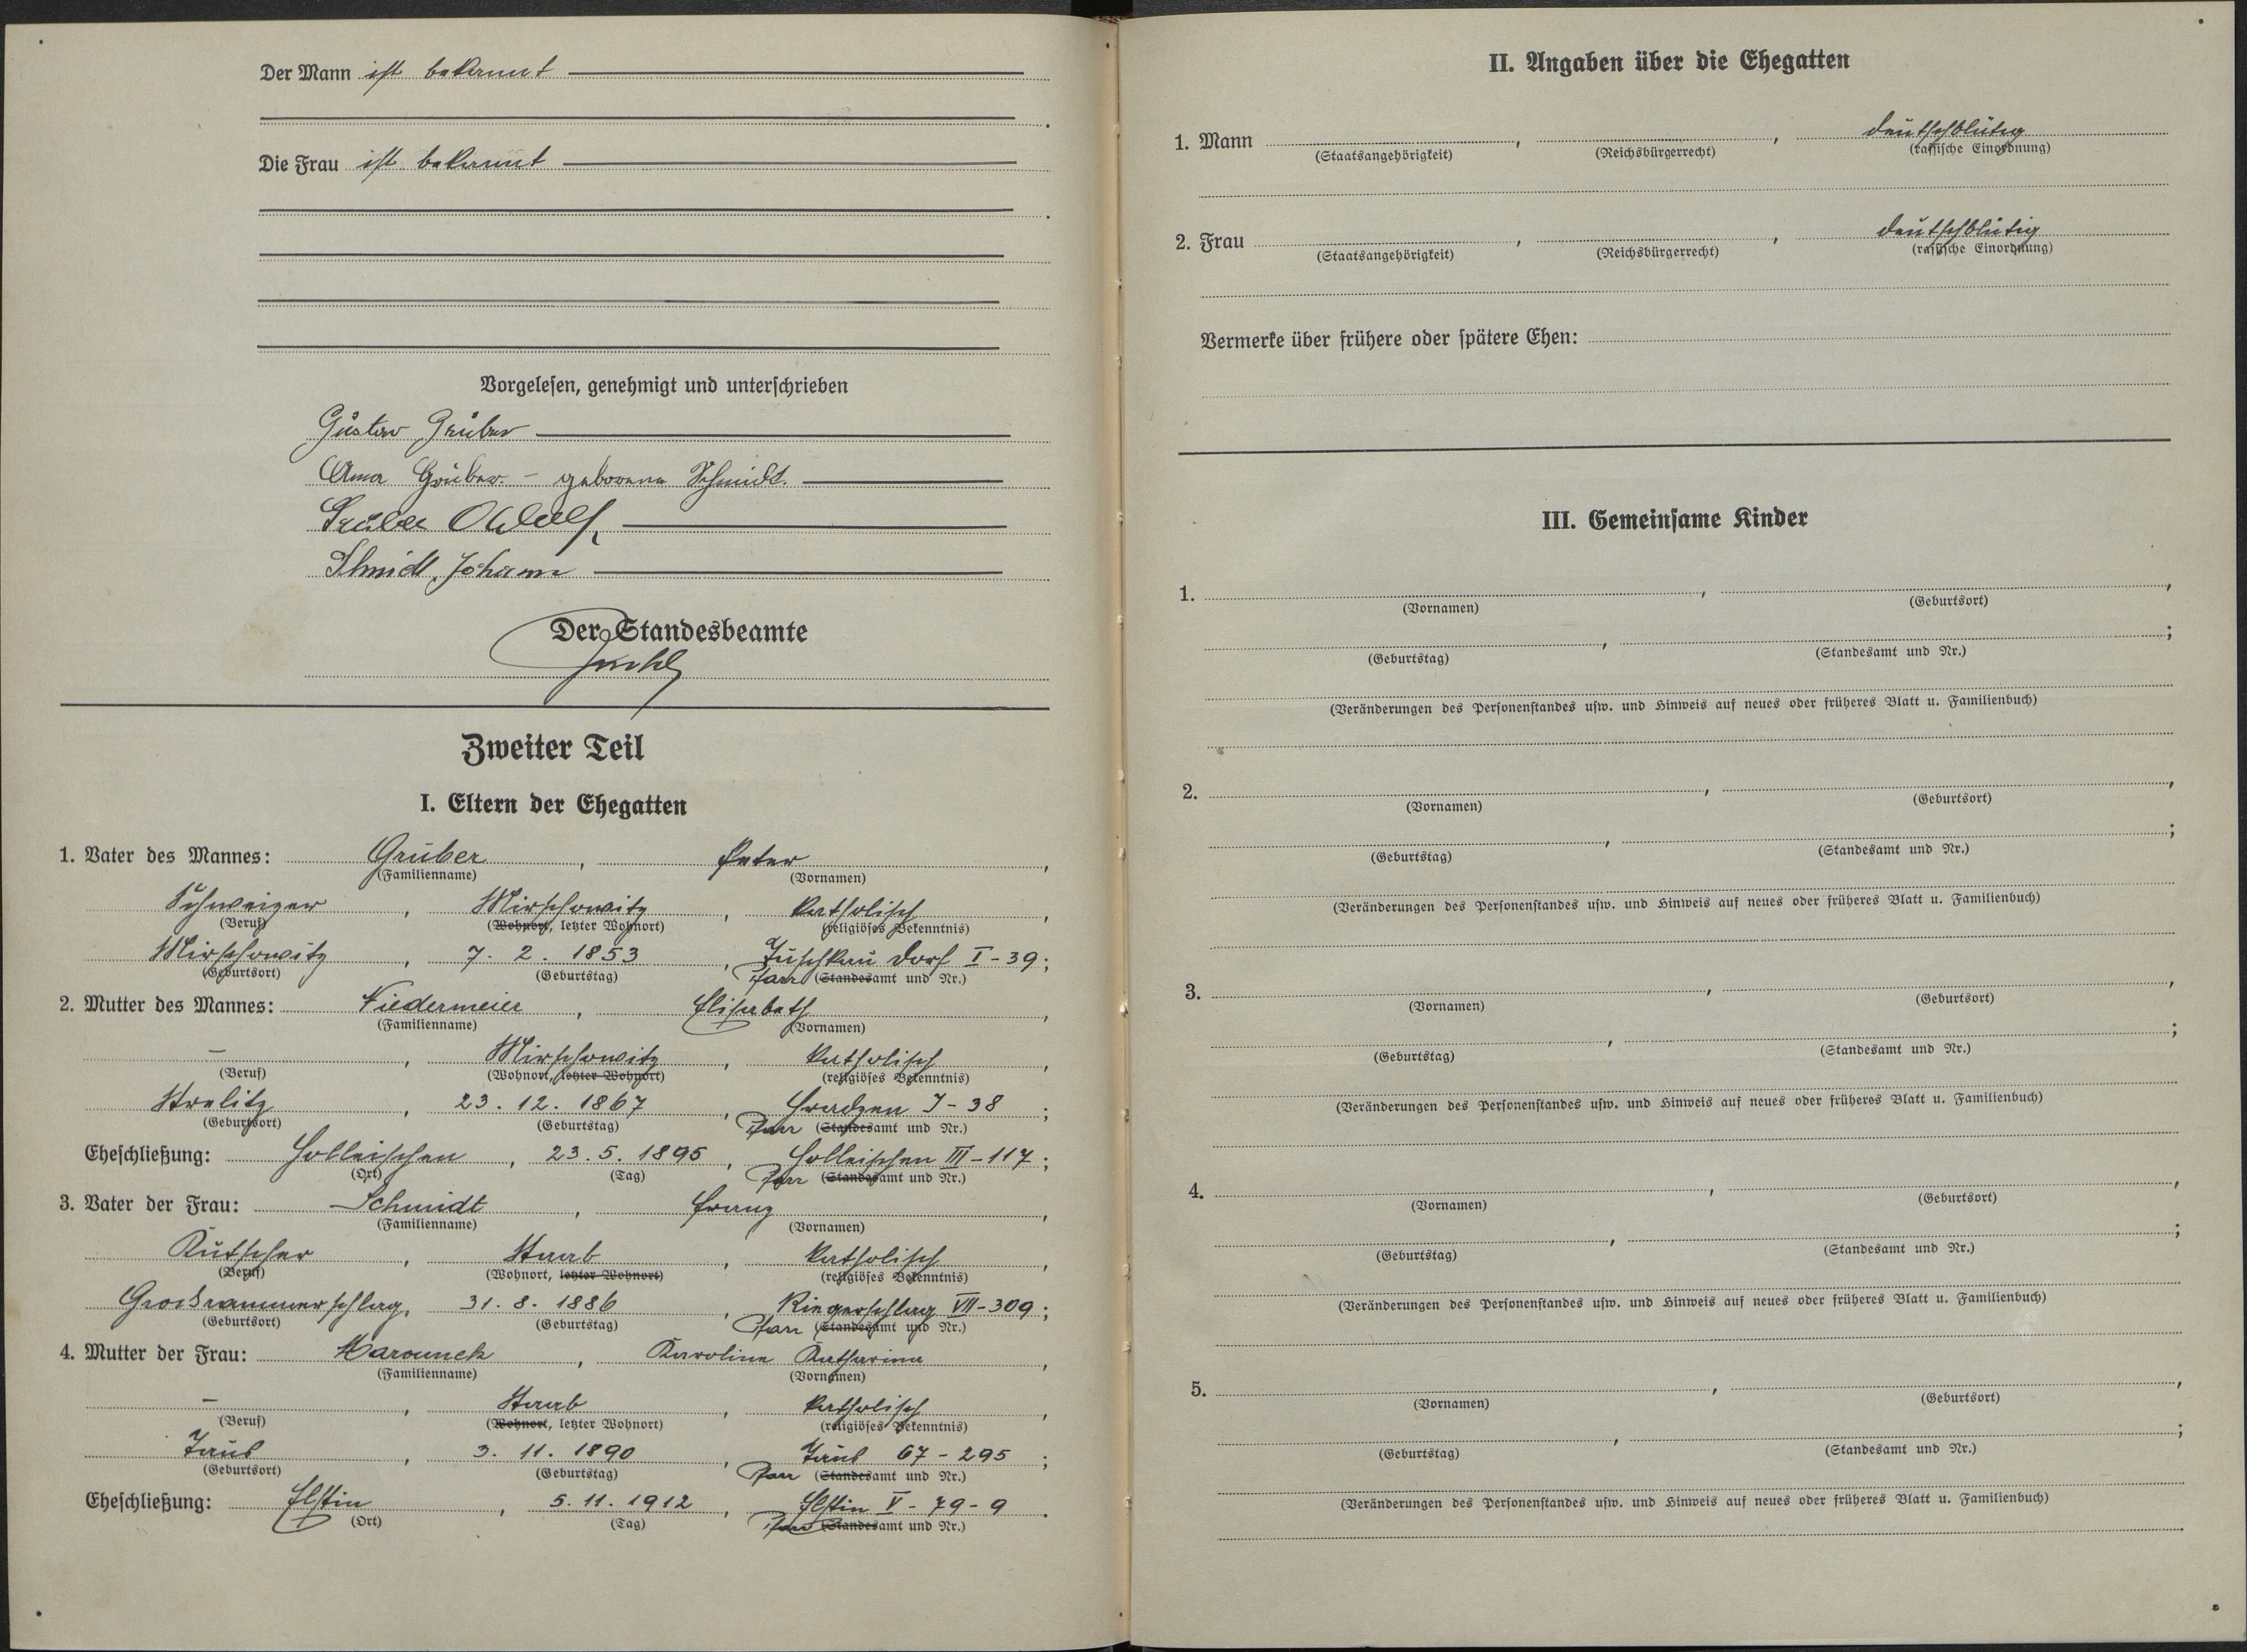 Der Mann ist bekannt
Die Frau ist bekannt
Vorgelesen, genehmigt und unterschrieben
Gustav Gruber
Anna Gruber - geborene Schmidt.
Gruber
Schmidt, Johann
Der Standesbeamte
Zweiter Teil
I. Eltern der Ehegatten
1. Vater des Mannes: Gruber, Peter,
(Familienname) (Vornamen)
Schweizer, Mirschowitz, katholisch,
(Beruf) (Wohnort, letzter Wohnort) (religiöses Bekenntnis)
Mirschowitz, 7. 2. 1853, Tuschkau Dorf I-39;
(Geburtsort) (Geburtstag) Pfarr (Standesamt und Nr.)
2. Mutter des Mannes: Niedermeier, Elisabeth,
(Familienname) (Vornamen)
-, Mirschowitz, katholisch,
(Beruf) (Wohnort, letzter Wohnort) (religiöses Bekenntnis)
Strelitz, 23. 12. 1867, Hradzen I-38;
(Geburtsort) (Geburtstag) Pfarr (Standesamt und Nr.)
Eheschließung: Holleischen, 23. 5. 1895, Holleischen III-117;
(Ort) (Tag) Pfarr (Standesamt und Nr.)
3. Vater der Frau: Schmidt, Franz,
(Familienname) (Vornamen)
Kutscher, Staab, katholisch,
(Beruf) (Wohnort, letzter Wohnort) (religiöses Bekenntnis)
Grossrammerschlag, 31. 8. 1886, Riegerschlag VII-309;
(Geburtsort) (Geburtstag) Pfarr (Standesamt und Nr.)
4. Mutter der Frau: Marounek, Karoline Katharina,
(Familienname) (Vornamen)
-, Staab, katholisch,
(Beruf) (Wohnort, letzter Wohnort) (religiöses Bekenntnis)
Taus, 3. 11. 1890, Taus 67-295;
(Geburtsort) (Geburtstag) Pfarr (Standesamt und Nr.)
Eheschließung: Elstin, 5. 11. 1912, Elstin V-79-9.
(Ort) (Tag) Pfarr (Standesamt und Nr.)
II. Angaben über die Ehegatten
1. Mann , , deutschblütig
(Staatsangehörigkeit) (Reichsbürgerrecht) (rassische Einordnung)
2. Frau , , deutschblütig
(Staatsangehörigkeit) (Reichsbürgerrecht) (rassische Einordnung)
Vermerke über frühere oder spätere Ehen:
III. Gemeinsame Kinder
1. , ,
(Vornamen) (Geburtsort)
, ;
(Geburtstag) (Standesamt und Nr.)
(Veränderungen des Personenstandes usw. und Hinweis auf neues oder früheres Blatt u. Familienbuch)
2. , ,
(Vornamen) (Geburtsort)
, ;
(Geburtstag) (Standesamt und Nr.)
(Veränderungen des Personenstandes usw. und Hinweis auf neues oder früheres Blatt u. Familienbuch)
3. , ,
(Vornamen) (Geburtsort)
, ;
(Geburtstag) (Standesamt und Nr.)
(Veränderungen des Personenstandes usw. und Hinweis auf neues oder früheres Blatt u. Familienbuch)
4. , ,
(Vornamen) (Geburtsort)
, ;
(Geburtstag) (Standesamt und Nr.)
(Veränderungen des Personenstandes usw. und Hinweis auf neues oder früheres Blatt u. Familienbuch)
5. , ,
(Vornamen) (Geburtsort)
, ;
(Geburtstag) (Standesamt und Nr.)
(Veränderungen des Personenstandes usw. und Hinweis auf neues oder früheres Blatt u. Familienbuch)